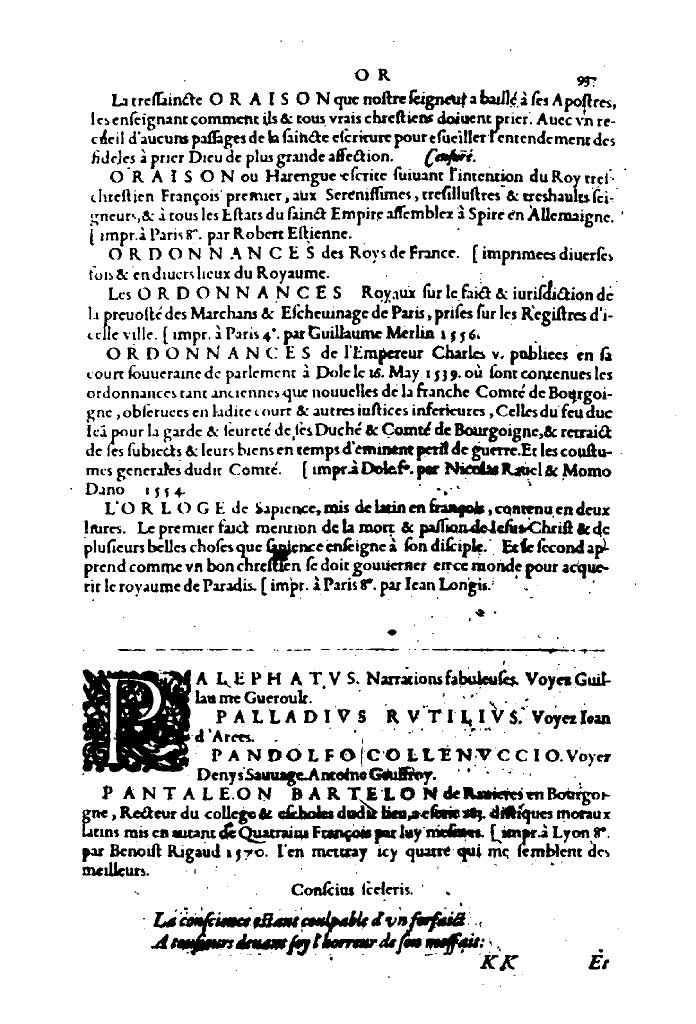 O R
937
La tressaincte O R A I S O N que nostre seigneur a baillé à ses Apostres,
les enseignant comment ils & tous vrais chrestiens doiuent prier. Auec vn re-
cueil d'aucuns passages de la saincte escriture pour esueiller l'entendement des
fideles à prier Dieu de plus grande affection. Censuré.
O R A I S O N ou Harengue escrite suiuant l'intention du Roy tres-
chrestien François premier, aux Serenissimes, tresillustres & treshaults sei-
gneurs, & à tous les Estats du sainct Empire assemblez à Spire en Allemaigne.
[ impr. à Paris 8°. par Robert Estienne.
O R D O N N A N C E S des Roys de France. [ imprimees diuerses
fois & en diuers lieux du Royaume.
Les O R D O N N A N C E S Royaux sur le faict & iurisdiction de
la preuosté des Marchans & Escheuinage de Paris, prises sur les Registres d'i-
celle ville. [ impr. à Paris 4°. par Guillaume Merlin 1556.
O R D O N N A N C E S de l'Empereur Charles v. publiees en sa
court souueraine de parlement à Dole le 16. May 1539. où sont contenues les
ordonnances tant anciennes que nouuelles de la franche Comté de Bourgoi-
gne, obseruees en ladite court & autres iustices inferieures, Celles du feu duc
Ieã pour la garde & seureté de ses Duché & Comté de Bourgoigne, & retraict
de ses subiects & leurs biens en temps d'eminent peril de guerre. Et les coustu-
mes generales dudit Comté. [ impr. à Dole f°. par Nicolas Rauel & Momo
Dano 1554.
L'O R L O G E de Sapience, mis de latin en françois, contenu en deux
liures. Le premier faict mention de la mort & passion de Iesus Christ & de
plusieurs belles choses que sapience enseigne à son disciple. Et le second ap-
prend comme vn bon chrestien se doit gouuerner en ce monde pour acque-
rir le royaume de Paradis. [ impr. à Paris 8°. par Iean Longis.
P A L E P H A T V S. Narrations fabuleuses. Voyez Guil-
laume Gueroult.
P A L L A D I V S R V T I L I V S. Voyez Iean
d'Arces.
P A N D O L F O C O L L E N V C C I O. Voyez
Denys Sauuage. Antoine Geuffroy.
P A N T A L E O N B A R T E L O N de Rauieres en Bourgoi-
gne, Recteur du college & escholes dudit lieu, a escrit distiques moraux
latins mis en autant de Quatrains François par luy mesmes. [ impr. à Lyon 8°.
par Benoist Rigaud 1570. I'en mettray icy quatre qui me semblent des
meilleurs.
Conscius sceleris.
La conscience estant coulpable d'vn forfaict
A tousiours deuant soy l'horreur de son meffait:
K K
Et